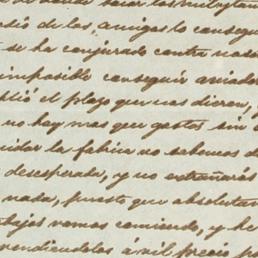 dió de los amigos lo consegu
se ha conjurado contra noso
imposible conseguir aviado
plió el plazo que nos dieron, y
no hay mas que gastos sin
cuidar la fabrica no sabemos d
desesperada, y no extrañarás
nada, puesto que absolutam
bajos vamos comiendo, y he
vendiendolos á vil precio p